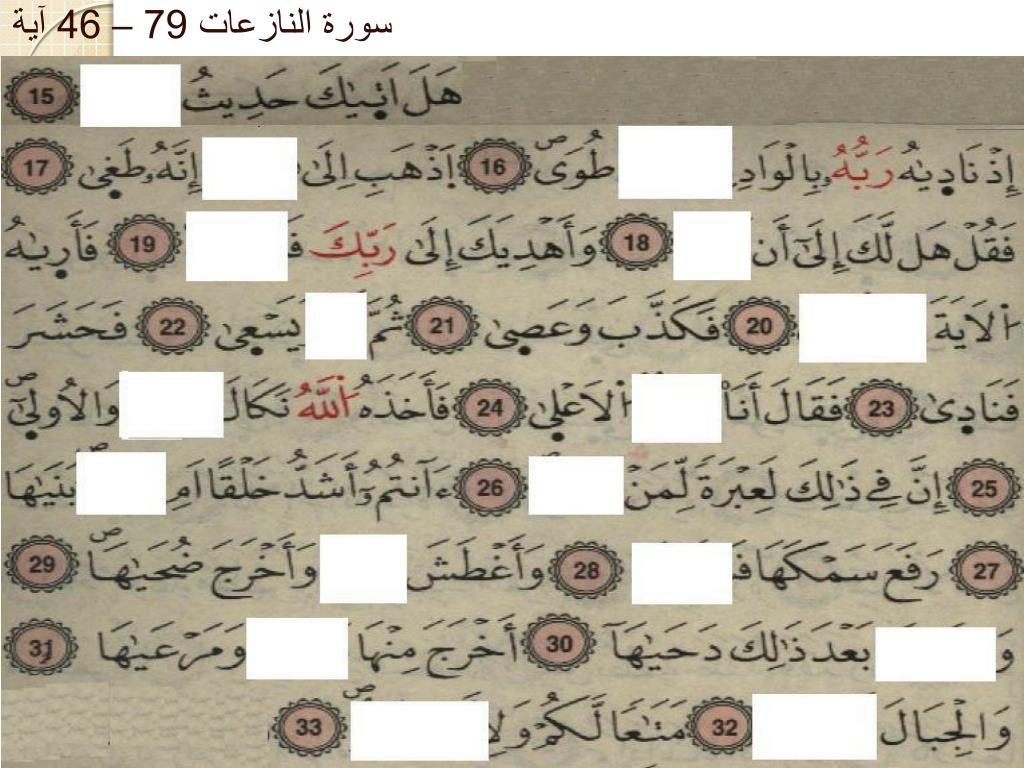 سورة النازعات 79 – 46 آية
هَلَ اَتٜيٰكَ حَدِيثُ 15
إِذْ نَادٜيٰهُ رَبُّهُۥ بِالْوَادِ طُوَىۖ 16 اَذْهَبِ اِلَىٰ إِنَّهُۥ طَغٜىٰ 17
فَقُلْ هَل لَّكَ إِلَىٰٓ أَن 18 وَأَهْدِيَكَ إِلَىٰ رَبِّكَ فَ 19 فَأَرٜيٰهُ
اَ۬لَايَةَ 20 فَكَذَّبَ وَعَصٜىٰ 21 ثُمَّ يَسْعٜىٰ 22 فَحَشَرَ
فَنَادٜىٰ 23 فَقَالَ أَنَا اَ۬لَاعْلٜىٰ 24 فَأَخَذَهُ اُ۬للَّهُ نَكَالَ وَالُاولٜىٰٓۖ
25 إِنَّ فِے ذَٰلِكَ لَعِبْرَةً لِّمَنْ 26 ءَآنتُمُۥٓ أَشَدُّ خَلْقًا اَمِ بَنٜيٰهَا
27 رَفَعَ سَمْكَهَا فَ 28 وَأَغْطَشَ وَأَخْرَجَ ضُحٜيٰهَاۖ 29
وَ بَعْدَ ذَٰلِكَ دَحٜيٰهَآ 30 أَخْرَجَ مِنْهَا وَمَرْعٜيٰهَا 31
وَالْجِبَالَ 32 مَتَٰعًا لَّكُمْ وَلِ 33